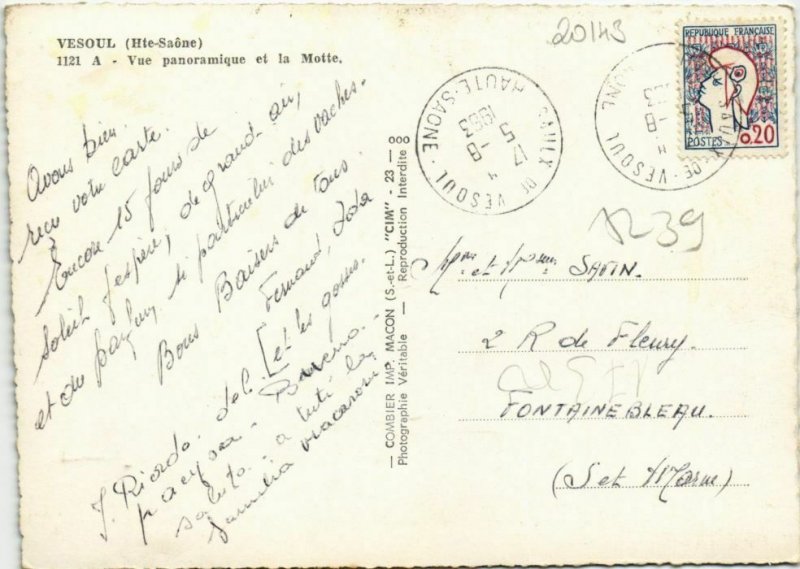 VESOUL (Hte-Saône)
1121 A - Vue panoramique et la Motte.
20143
REPUBLIQUE FRANÇAISE
POSTES
0,20
VAULX DE VESOUL
HAUTE-SAONE
17 H
5 - 8
1963
Avons bien
reçu votre carte.
Encore 15 jours de
soleil j'espère, de grand air,
et du parfum si particulier des vaches.
Bons Baisers de tous.
Fernand, Ida
[et les gosses.
J. Ricordo del
paeyson - Bareno.
saluto a tuti la
familia macaroni
— COMBIER IMP. MACON (S.-et-L.) "CIM" - 23 — ooo
Photographie Véritable — Reproduction Interdite
1239
Mme et Mr SAVIN.
2 R de Fleury.
FONTAINEBLEAU.
(S et Marne)